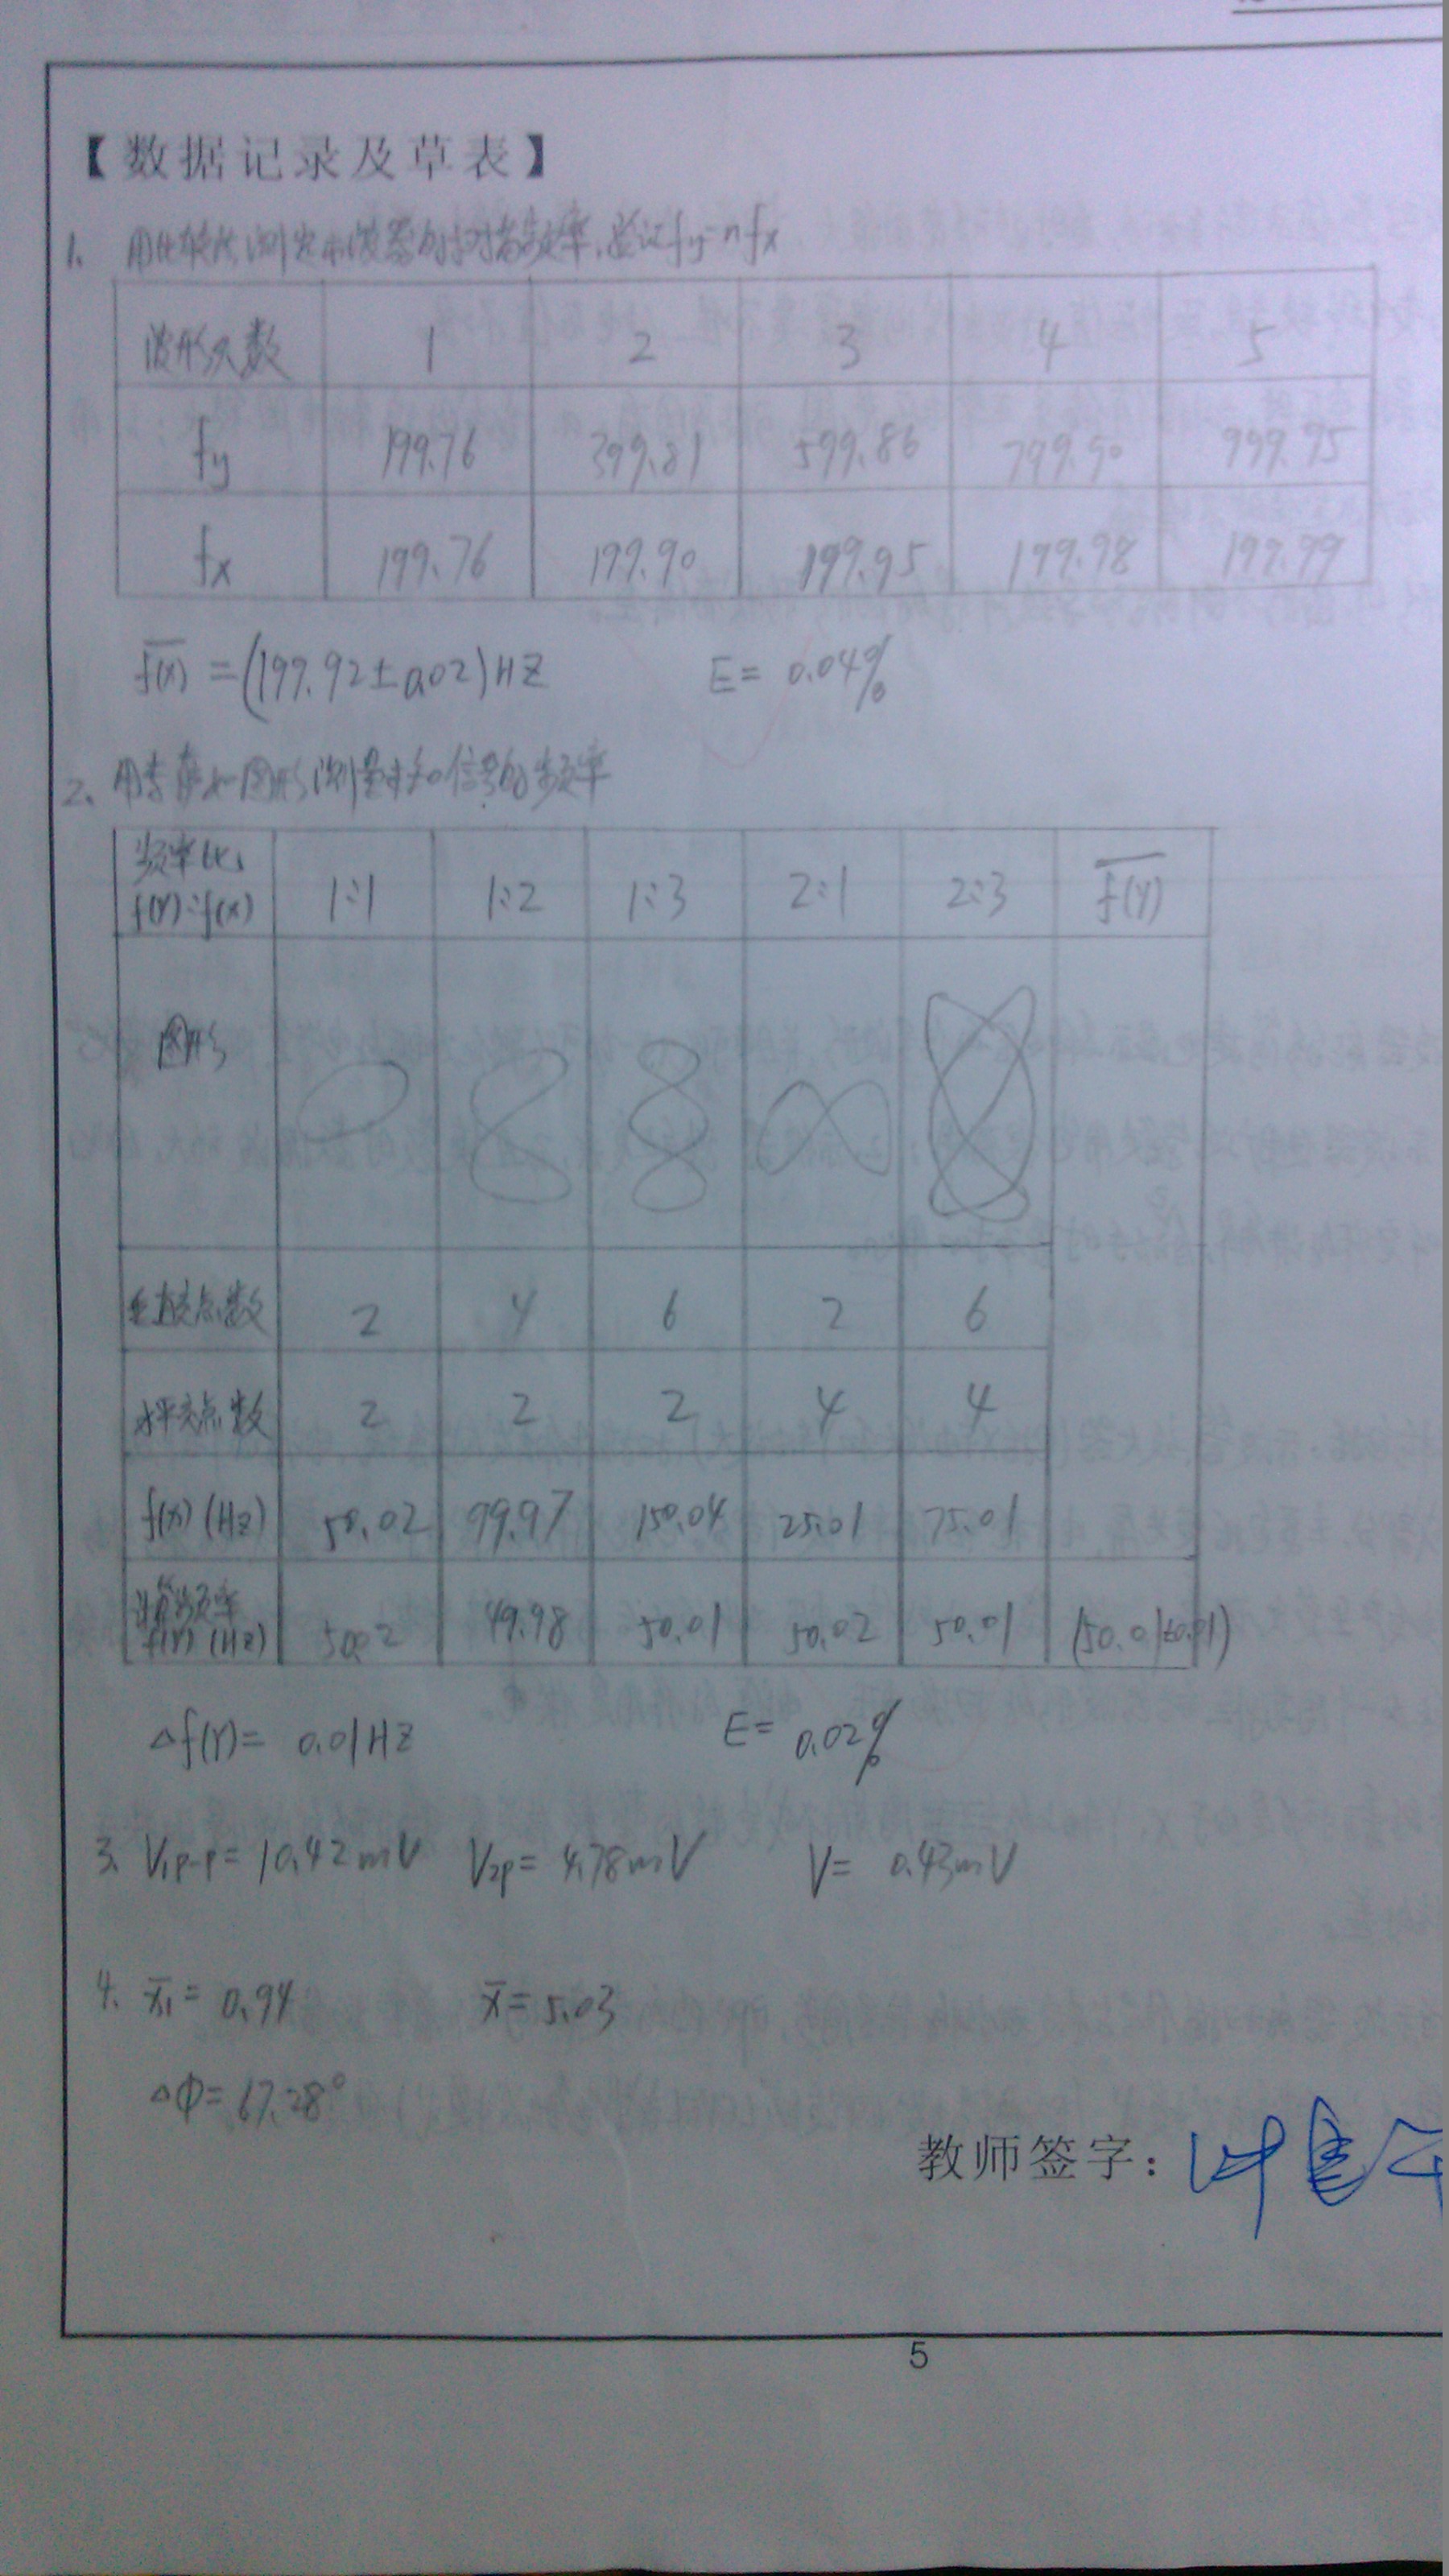 【数据记录及草表】
1. 用比较法测定示波器的扫描频率,验证fy=nfx
波形个数 1 2 3 4 5
fy 199.76 399.81 599.86 799.90 999.95
fx 199.76 199.90 199.95 199.98 199.99
f(x) = (199.92±0.02)HZ E= 0.04%
2. 用李萨如图形测量未知信号的频率
频率比 f(Y):f(X) 1:1 1:2 1:3 2:1 2:3 f(Y)
图形
垂直交点数 2 4 6 2 6
水平交点数 2 2 2 4 4
f(X) (Hz) 50.02 99.97 150.04 25.01 75.01
计算频率 f(Y) (Hz) 50.02 49.98 50.01 50.02 50.01 (50.01±0.01)
△f(Y)= 0.01HZ E= 0.02%
3. V1p-p= 10.42mV V2p= 4.78mV V= 0.43mV
4. x̄1= 0.94 x̄=5.03
△Φ= 67.28°
教师签字:
5